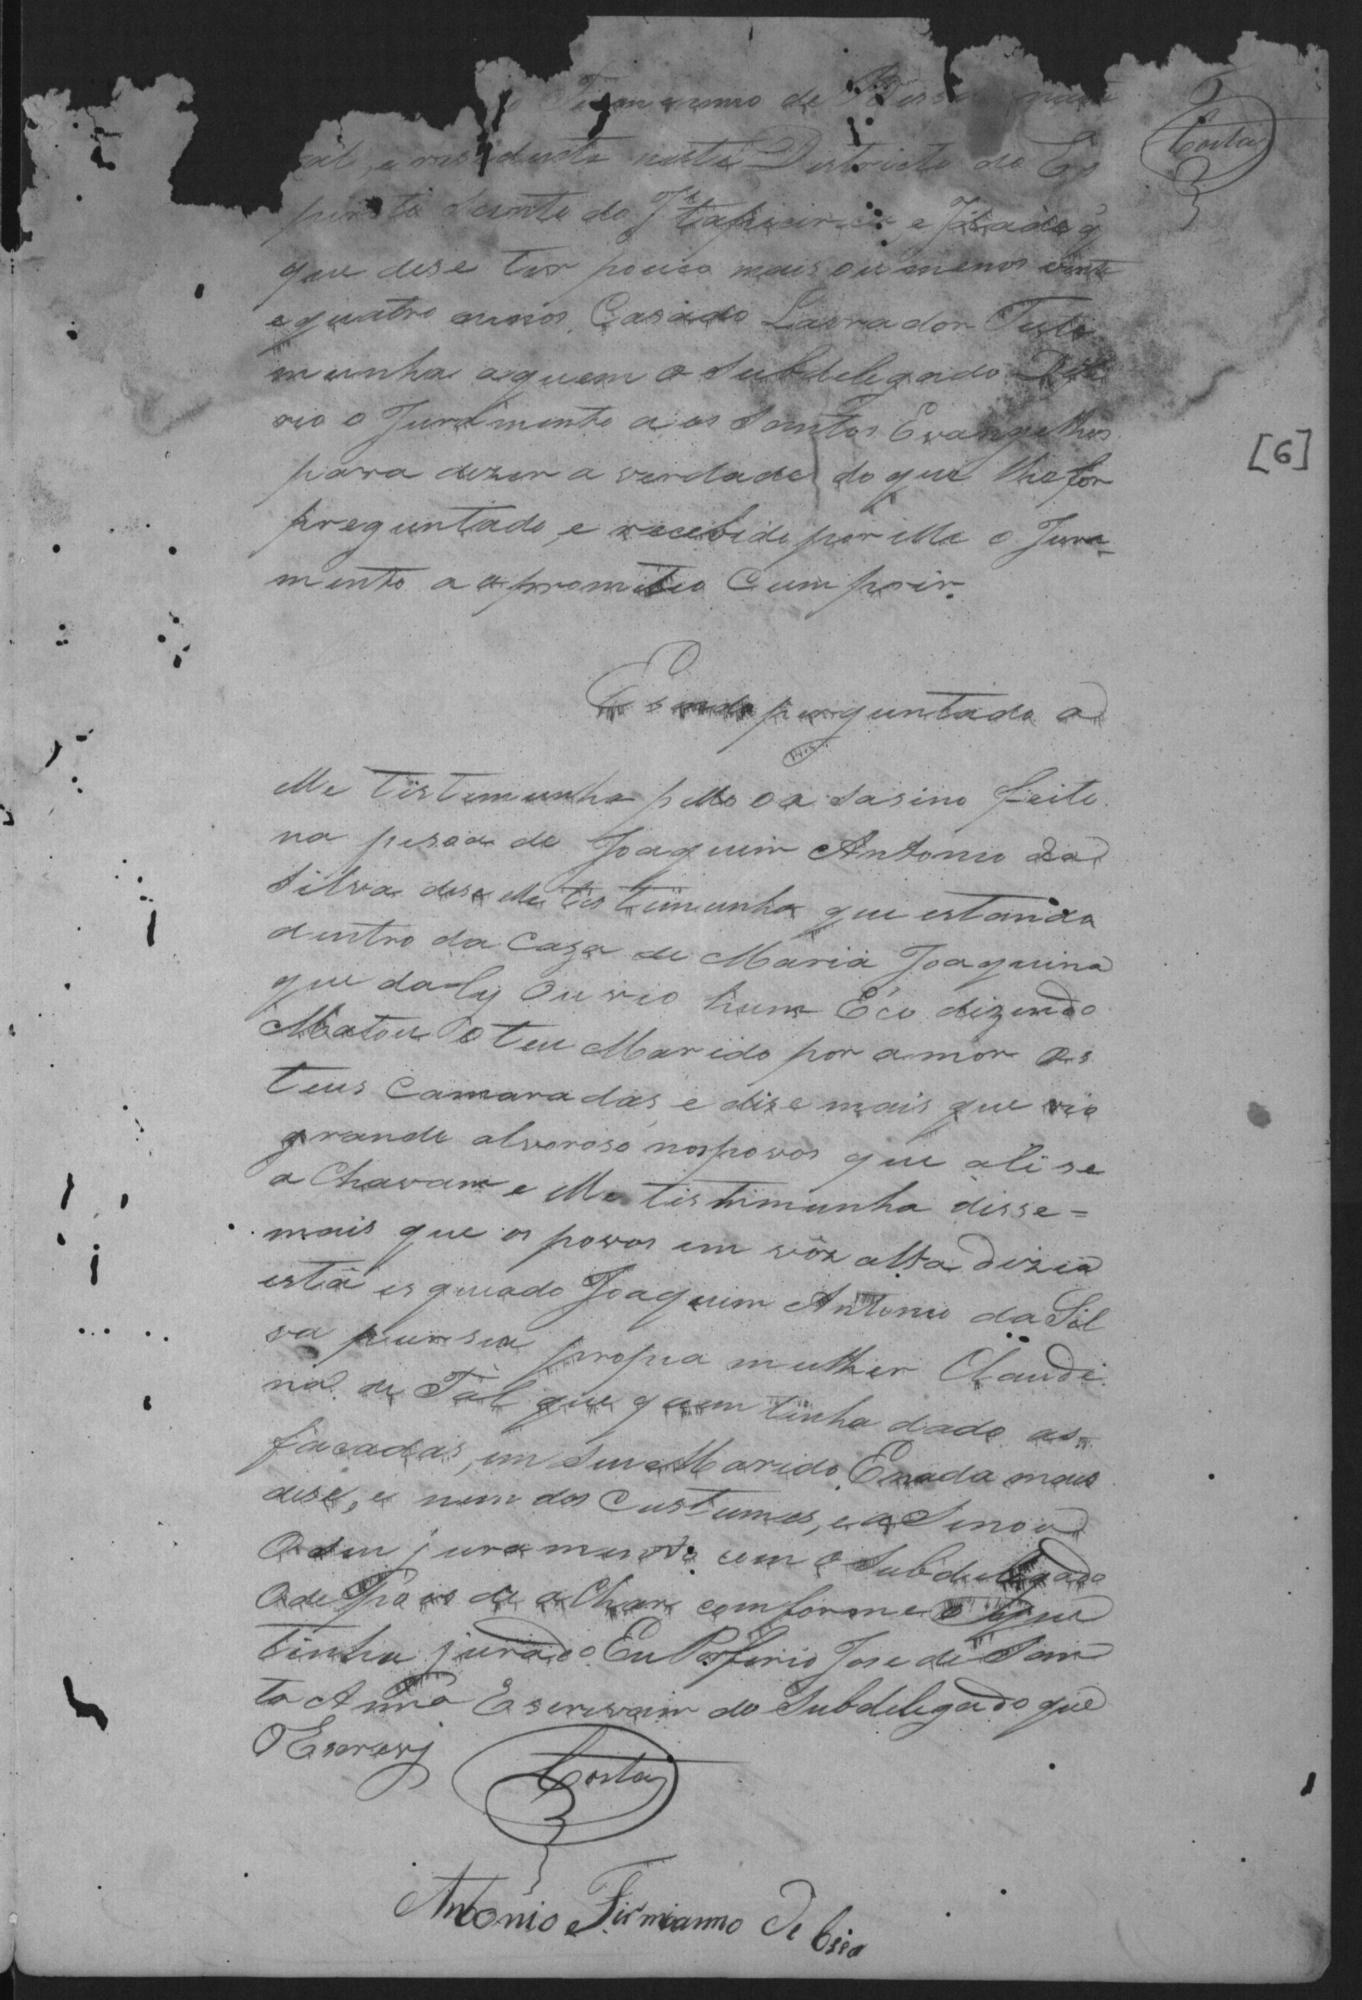 Firmianno de
Costa
e residente neste Districto do Es
pirito Santo da Itapicirica, e Idade q
que dise ter pouco mais ou menos vinte
e quatro annos, Casado Lavrador Teste
munha aquem o Subdelegado Defe
rio o Juramento a os Santos Evangelhos
para dizer a verdade do que lhe for
preguntado, e recebido por elle o Jura-
mento a o prometeo Cumprir.
[6]
E sendo perguntado a
elle Testemunha pello oa sasino feito
na pesoa de Joaquim Antonio da
Silva dise elle testemunha que estando
dentro da Caza de Maria Joaquina
que daly ouvio hum Éco dizendo
Matou o teu Marido por amor os
teus Camaradas, e dise mais que vio
grande alvoroso nos povos que ali se
a Chavam e elle testimunha disse =
mais que os povos em vôz alta dizia
está esquiado Joaquim Antonio da Sil
va pur sua propia mulher Claudi
na de Tál que quem tinha dado as
facadas, em seu Marido, E nada mais
dise, e nem dos Custumes, e a Sinou
O seu juramento com o Subdelegado
O de Pois de a Char comforme o que
tinha jurado. Eu Porfirio Jose de San
ta Anna Escrivam do Subdelegado que
O Escrevi
Costa
Antonio Firmianno de